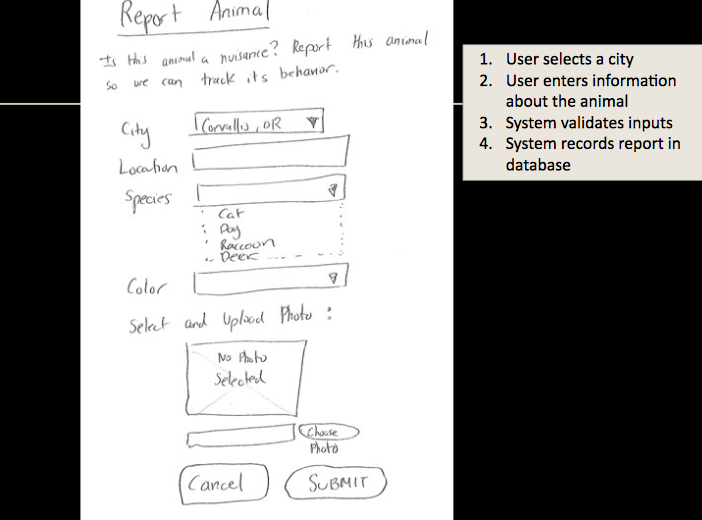 Report Animal
Is this animal a nuisance? Report this animal
so we can track its behavior.
City
Corvallis, OR
Location
Species
Cat
Dog
Raccoon
Deer
Color
Select and Upload Photo :
No Photo
Selected
Choose
Photo
Cancel
SUBMIT
1. User selects a city
2. User enters information
about the animal
3. System validates inputs
4. System records report in
database